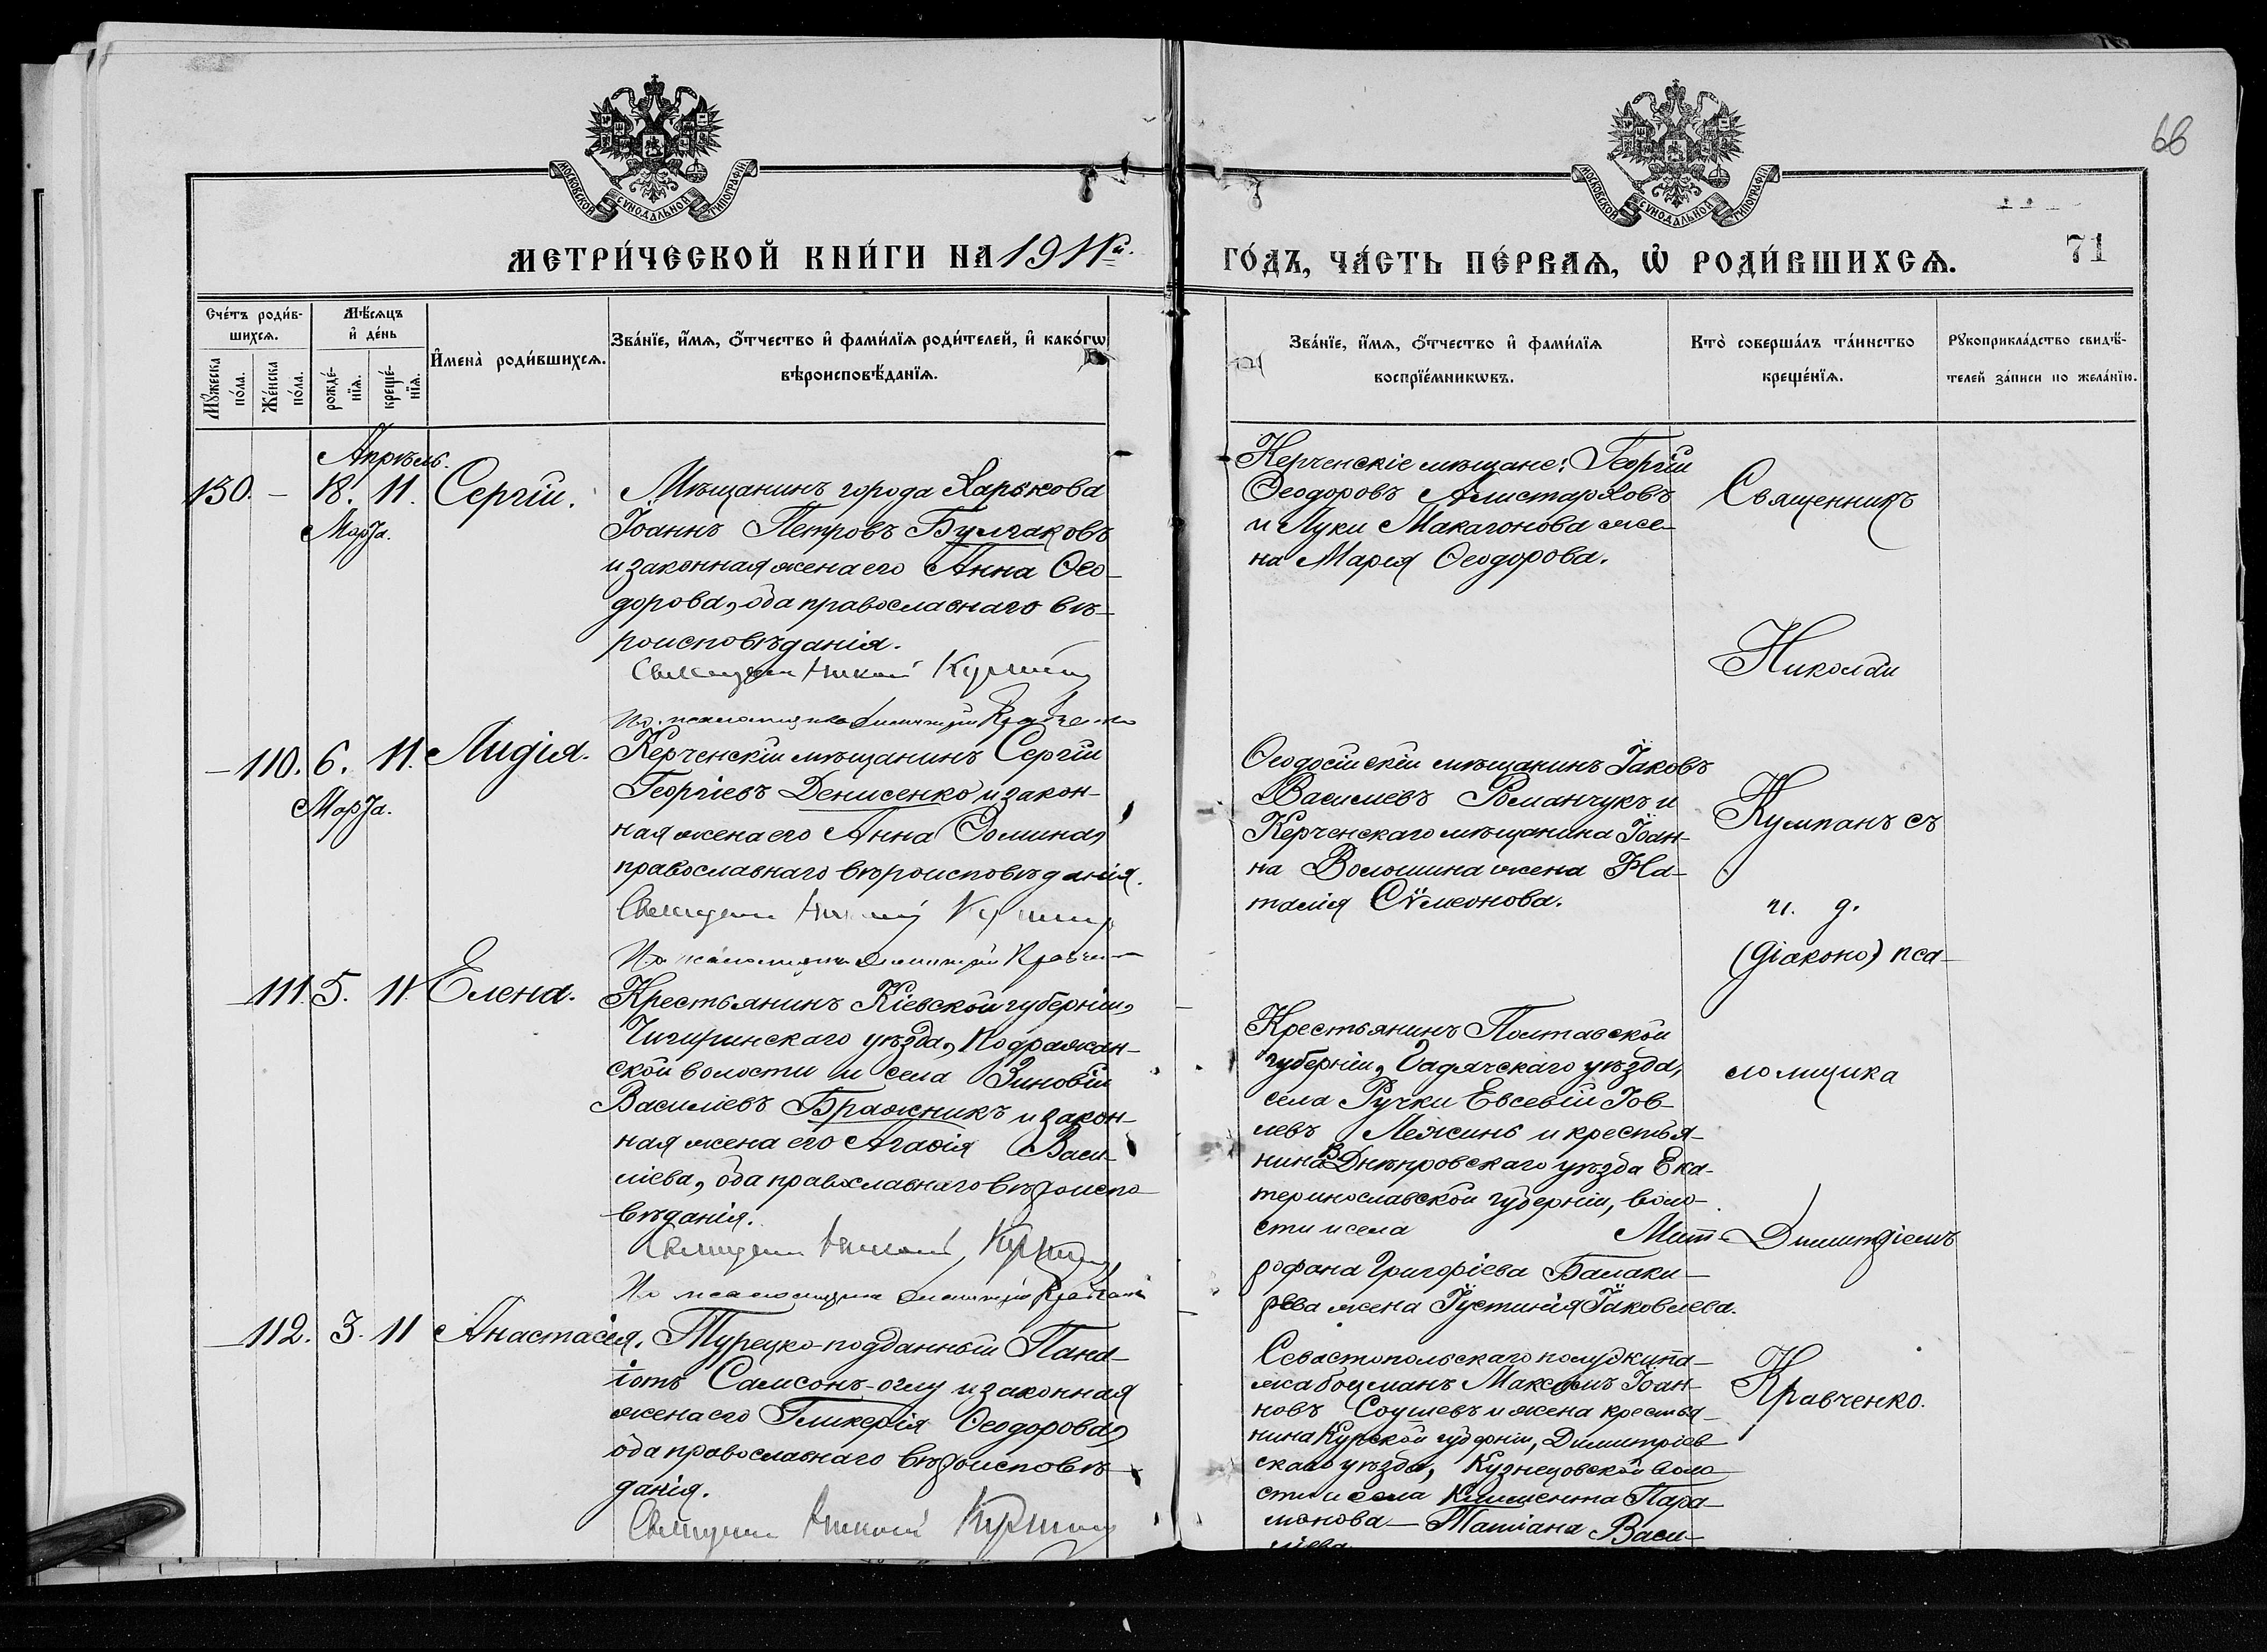 68
МОСКОВСКОЙ СѴНОДАЛЬНОЙ ТИПОГРАФІИ
МОСКОВСКОЙ СѴНОДАЛЬНОЙ ТИПОГРАФІИ
МЕТРИ́ЧЕСКОЙ КНИ́ГИ НА 1911й.
ГО́ДЪ, ЧА́СТЬ ПЕ́РВАѦ, Ѡ҆ РОДИ́ВШИХСѦ.
71
Сче́тъ роди́в-
шихсѧ.
Мꙋ́жеска
по́ла.
Же́нска
по́ла.
Мѣ́сѧцъ
и҆ де́нь
рожде́-
нїѧ.
креще́-
нїѧ.
И҆мена̀ роди́вшихсѧ.
Зва́нїе, и҆́мѧ, ѻ҆́тчество и҆ фами́лїѧ роди́телей, и҆ како́гѡ
вѣроисповѣ́данїѧ.
Зва́нїе, и҆́мѧ, ѻ҆́тчество и҆ фами́лїѧ
воспрїе́мникѡвъ.
Кто̀ соверша́лъ та́инство
креще́нїѧ.
Рꙋкоприкла́дство свидѣ́-
телей за́писи по жела́нїю.
Апрѣль.
130. – 18. 11. Сергій.
Марта.
Мѣщанинъ города Харькова
Іоаннъ Петровъ Булгаковъ
и законная жена его Анна Ѳео-
дорова, оба православнаго вѣ-
роисповѣданія.
Священникъ Николай
Керченскіе мѣщане: Георгій
Ѳеодоровъ Алистарховъ
и Луки Макагонова же-
на Марія Ѳеодорова.
Священникъ
Николай
Кумпанъ съ
и. д.
(діакона) пса-
ломщика
Димитріемъ
Кравченко.
И. д. псаломщика Димитрій Кравченко
– 110. 6. 11. Лидія.
Марта.
Керченскій мѣщанинъ Сергій
Георгіевъ Денисенко и закон-
ная жена его Анна Ѳомина,
православнаго вѣроисповѣданія.
Священникъ Николай
И. д. псаломщика Димитрій Кравченко
Ѳеодосійскій мѣщанинъ Іаковъ
Василіевъ Романчукъ и
Керченскаго мѣщанина Іоан-
на Волошина жена На-
талія Сѵмеонова.
– 111. 5. 11. Елена.
Крестьянинъ Кіевской губерніи,
Чигиринскаго уѣзда, Подражан-
ской волости и села Зиновій
Василіевъ Бражникъ и закон-
ная жена его Агаѳія Васи-
ліева, оба православнаго вѣроиспо-
вѣданія.
Священникъ Николай
И. д. псаломщика Димитрій Кравченко
Крестьянинъ Полтавской
губерніи, Гадячскаго уѣзда,
села Ручки Евсевій Іов-
левъ Лежинь и крестья-
нина В Днѣпровскаго уѣзда Ека-
теринославской губерніи, воло-
сти и села Мит-
рофана Григоріева Балаки-
рева жена Іустинія Іаковлева.
– 112. 3. 11 Анастасія.
Турецко-подданный Пана-
іотъ Самсонъ-оглу и законная
жена его Гликерія Ѳеодорова,
оба православнаго вѣроисповѣ-
данія.
Священникъ Николай
Севастопольскаго полуэкипа-
жа боцманъ Максимъ Іоан-
новъ Соушевъ и жена крестья-
нина Курской губерніи, Димитріев-
скаго уѣзда, Кузнецовской воло-
сти и села Климента Пара-
монова – Татіана Васи-
ліева